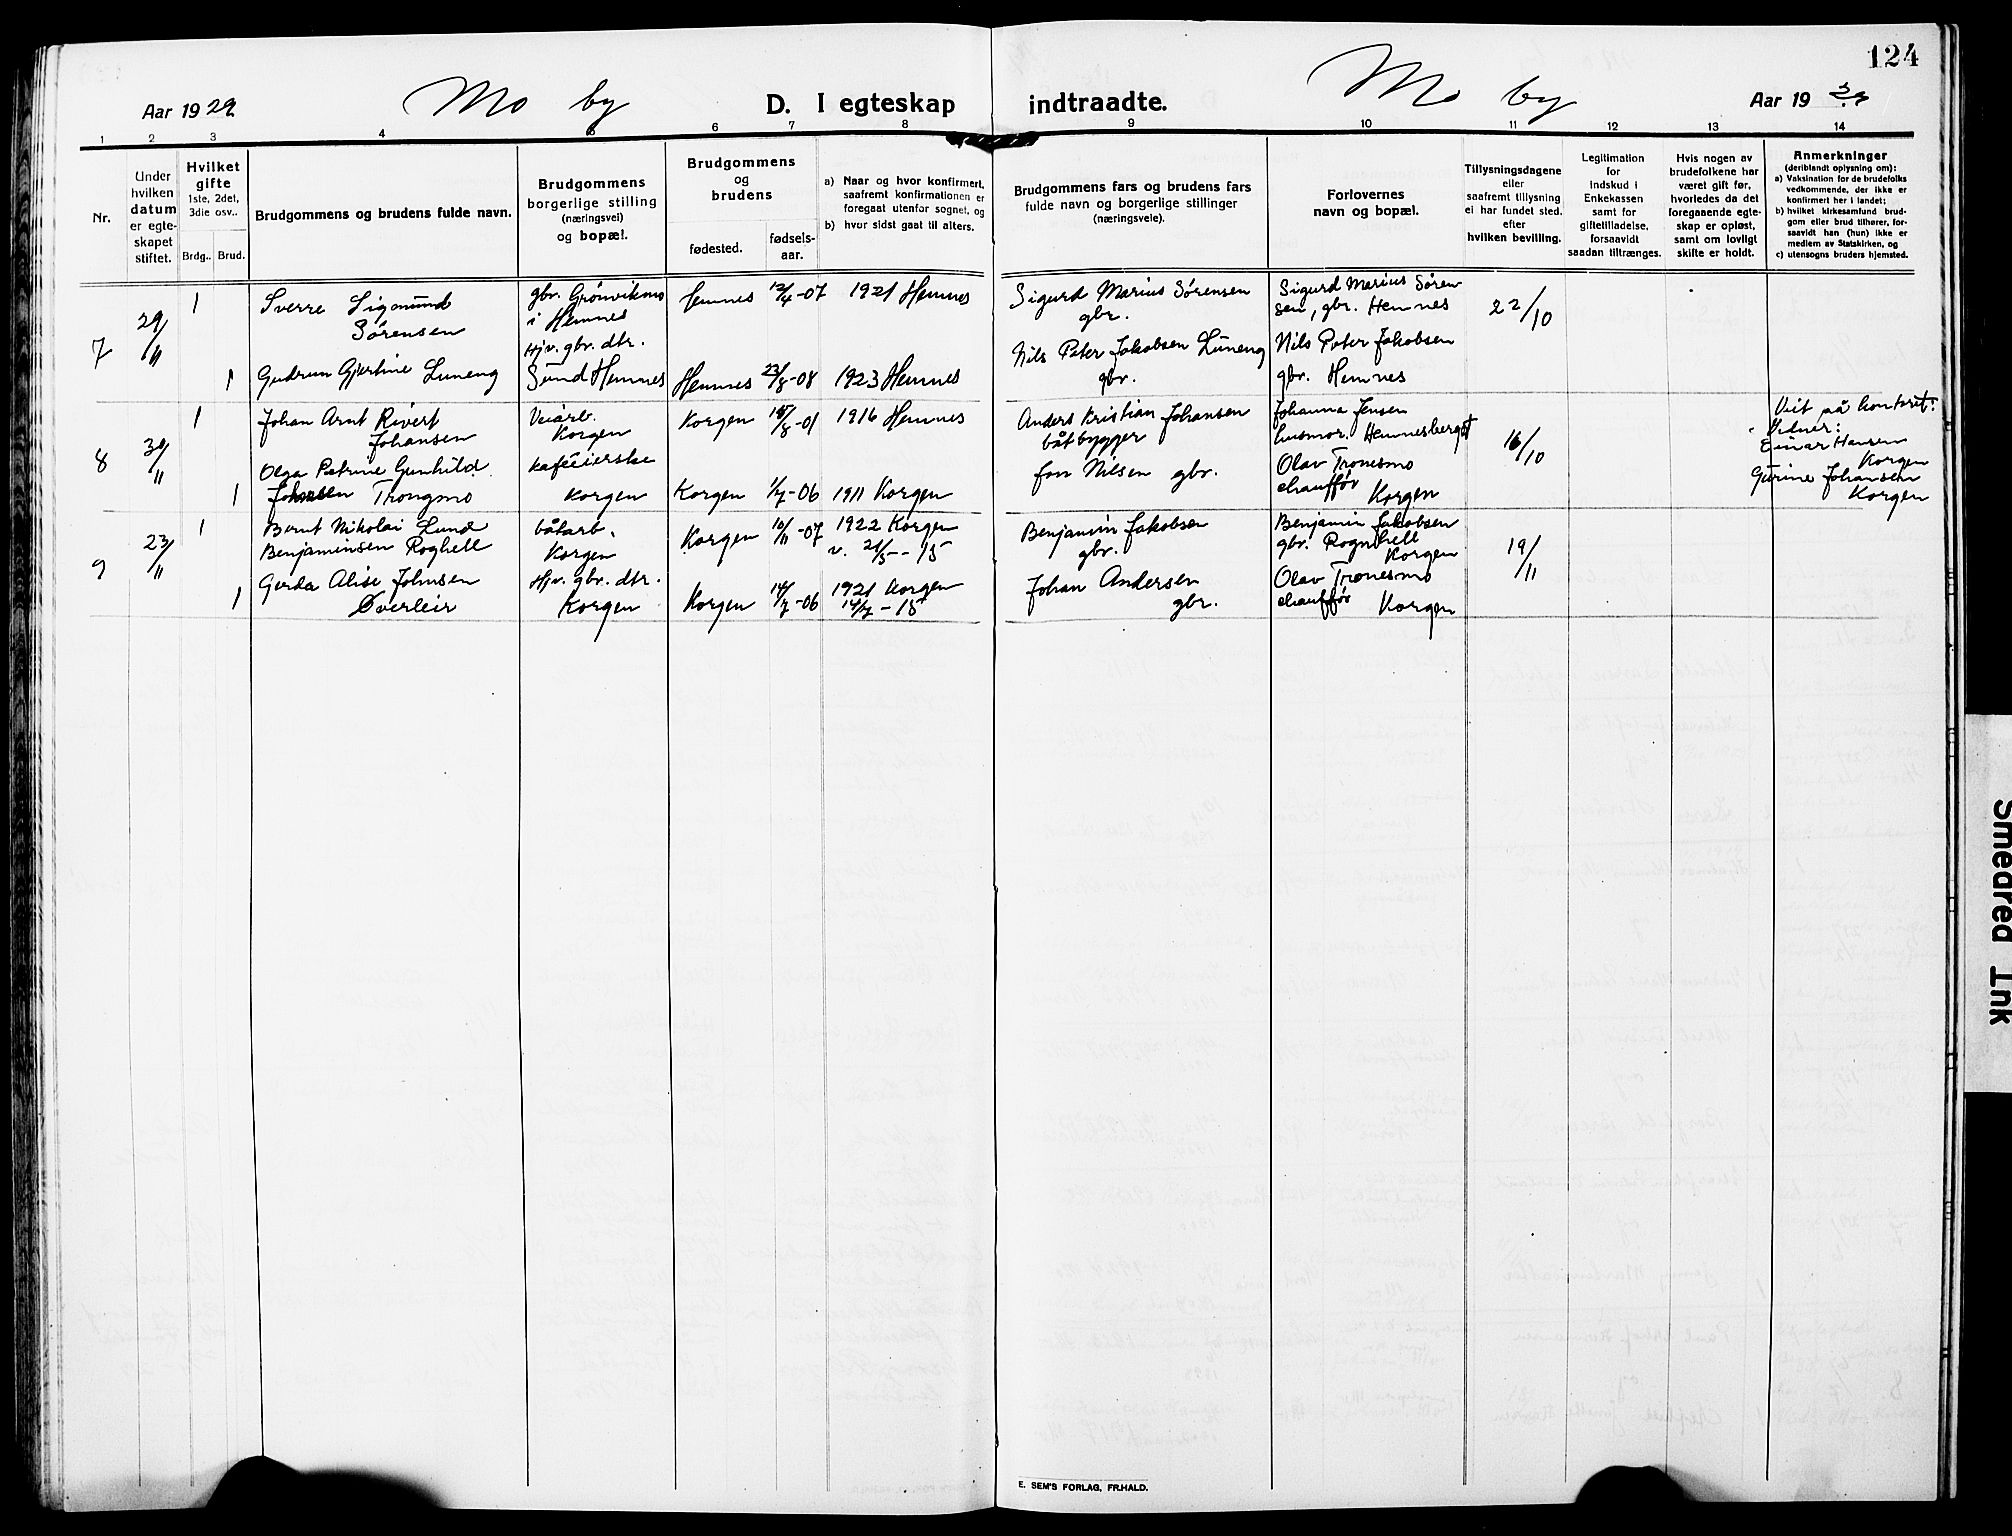 124
Aar 1929
Mo by
D. I egteskap
indtraadte.
Mo by
Aar 19
1 2 3 4 5 6 7 8 9 10 11 12 13 14
Nr.
Under
hvilken
datum
er egte-
skapet
stiftet.
Hvilket
gifte
1ste, 2det,
3die osv..
Brdg.. Brud.
Brudgommens og brudens fulde navn.
Brudgommens
borgerlige stilling
(næringsvei)
og bopæl.
Brudgommens
og
brudens
fødested.
fødsels-
aar.
a) Naar og hvor konfirmert,
saafremt konfirmationen er
foregaat utenfor sognet, og
b) hvor sidst gaat til alters.
Brudgommens fars og brudens fars
fulde navn og borgerlige stillinger
(næringsveie).
Forlovernes
navn og bopæl.
Tillysningsdagene
eller
saafremt tillysning
ei har fundet sted.
efter
hvilken bevilling.
Legitimation
for
Indskud i
Enkekassen
samt for
giftetilladelse,
forsaavidt
saadan tiltrænges.
Hvis nogen av
brudefolkene har
været gift før,
hvorledes da det
foregaaende egte-
skap er opløst,
samt om lovligt
skifte er holdt.
Anmerkninger
(deriblandt oplysning om):
a) Vaksination for de brudefolks
vedkommende, der ikke er
konfirmert her i landet;
b) hvilket kirkesamfund brud-
gom eller brud tilhører, for-
saavidt han (hun) ikke er
medlem av Statskirken, og
c) utensogns bruders hjemsted.
7
29/11
1
Sverre Sigmund
Sørensen
gbr. Grønviknes
i Hemnes
Hemnes 12/4-07 1921 Hemnes
Sigurd Marius Sørensen
gbr.
Sigurd Marius Søren
sen, gbr. Hemnes
22/10
1
Gudrun Gjertine Luneng
Hjv. gbr. dtr.
Sund Hemnes
Hemnes 23/8-08 1923 Hemnes
Nils Peter Jakobsen Luneng
gbr.
Nils Peter Jakobsen
gbr. Hemnes
8
30/11
1
Johan Arnt Rivert
Johansen
Veiarb.
Korgen
Korgen 15/8-01 1916 Hemnes
Anders Kristian Johansen
båtbygger
Johanna Jensen
husmor. Hemnesberget
16/10
Viet på kontoret:
Vidner:
Einar Hansen
Korgen
Gurine Johansen
Korgen
1
Olga Petrine Gunhild
Johnsen Trongmo
kaféeierske
Korgen
Korgen 1/7-06 1911 Korgen
Jon Nilsen gbr.
Olav Tronesmo
chauffør Korgen
9
23/11
1
Bernt Nikolai Lund
Benjaminsen Roghell
båtarb.
Korgen
Korgen 10/11-07 1922 Korgen
v. 21/5--15
Benjamin Jakobsen
gbr.
Benjamin Jakobsen
gbr. Rognhell
Korgen
19/11
1
Gerda Alise Johnsen
Øverleir
Hjv. gbr. dtr.
Korgen
Korgen 14/7-06 1921 Korgen
14/7-15
Johan Andersen
gbr.
Olav Tronesmo
chauffør Korgen
E. SEM'S FORLAG, FR.HALD.
Smeared Ink